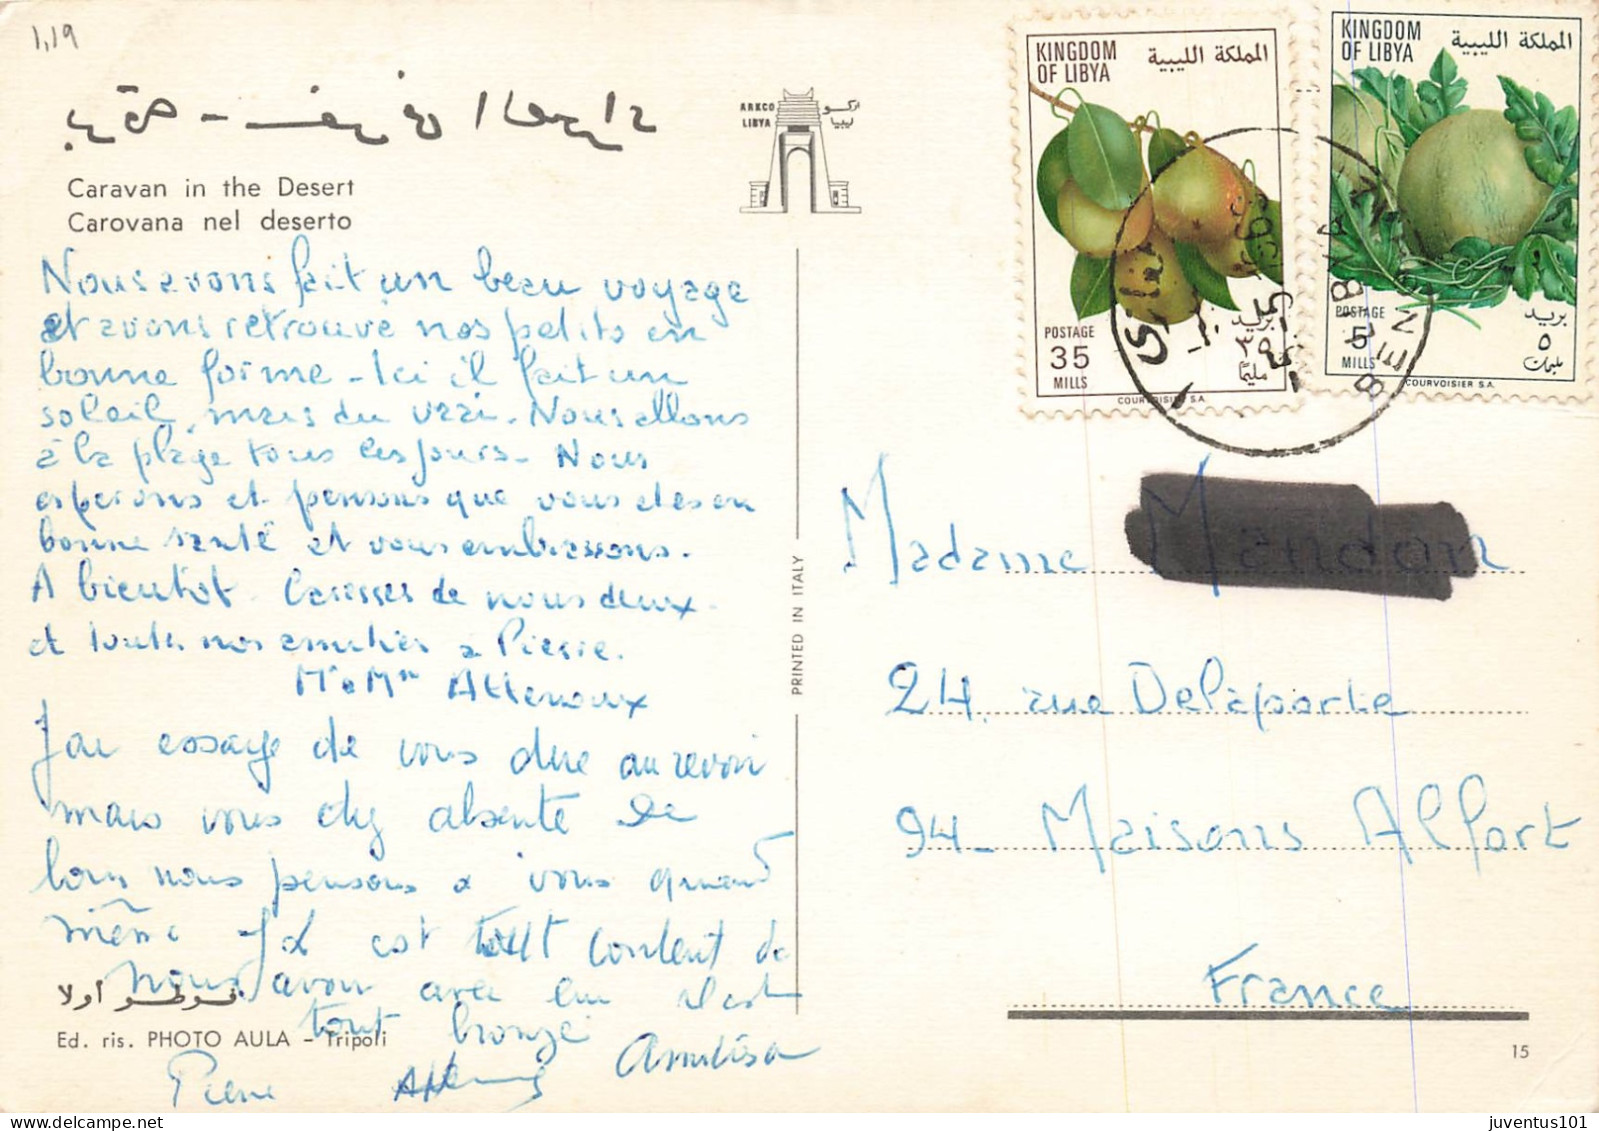 1,19
Caravan in the Desert
Carovana nel deserto
ARKCO
LIBYA
اركو
ليبيا
Nous avons fait un beau voyage
et avons retrouvé nos petits en
bonne forme - Ici il fait un
soleil, mais du vrai. Nous allons
à la plage tous les jours. Nous
esperons et pensons que vous etes en
bonne santé et vous embrassons.
A bientot. Caresses de nous deux
et toutes nos amitiés à Pierre.
Mr & Mme
J'ai essayé de vous dire au revoir
mais vous étiez absente De
loin nous pensons a vous quand
même Il est tout content de
nous avoir avec lui il est
tout bronzé
Pierre
PRINTED IN ITALY
فوتو أولا
Ed. ris. PHOTO AULA - Tripoli
KINGDOM
OF LIBYA
المملكة الليبية
POSTAGE
35
MILLS
بريد
٣٥
مليمًا
COURVOISIER S.A.
KINGDOM
OF LIBYA
المملكة الليبية
POSTAGE
5
MILLS
بريد
٥
مليمات
COURVOISIER S.A.
Madame Mandon
24, rue Delaporte
94- Maisons Alfort
France
15
www.juventus101